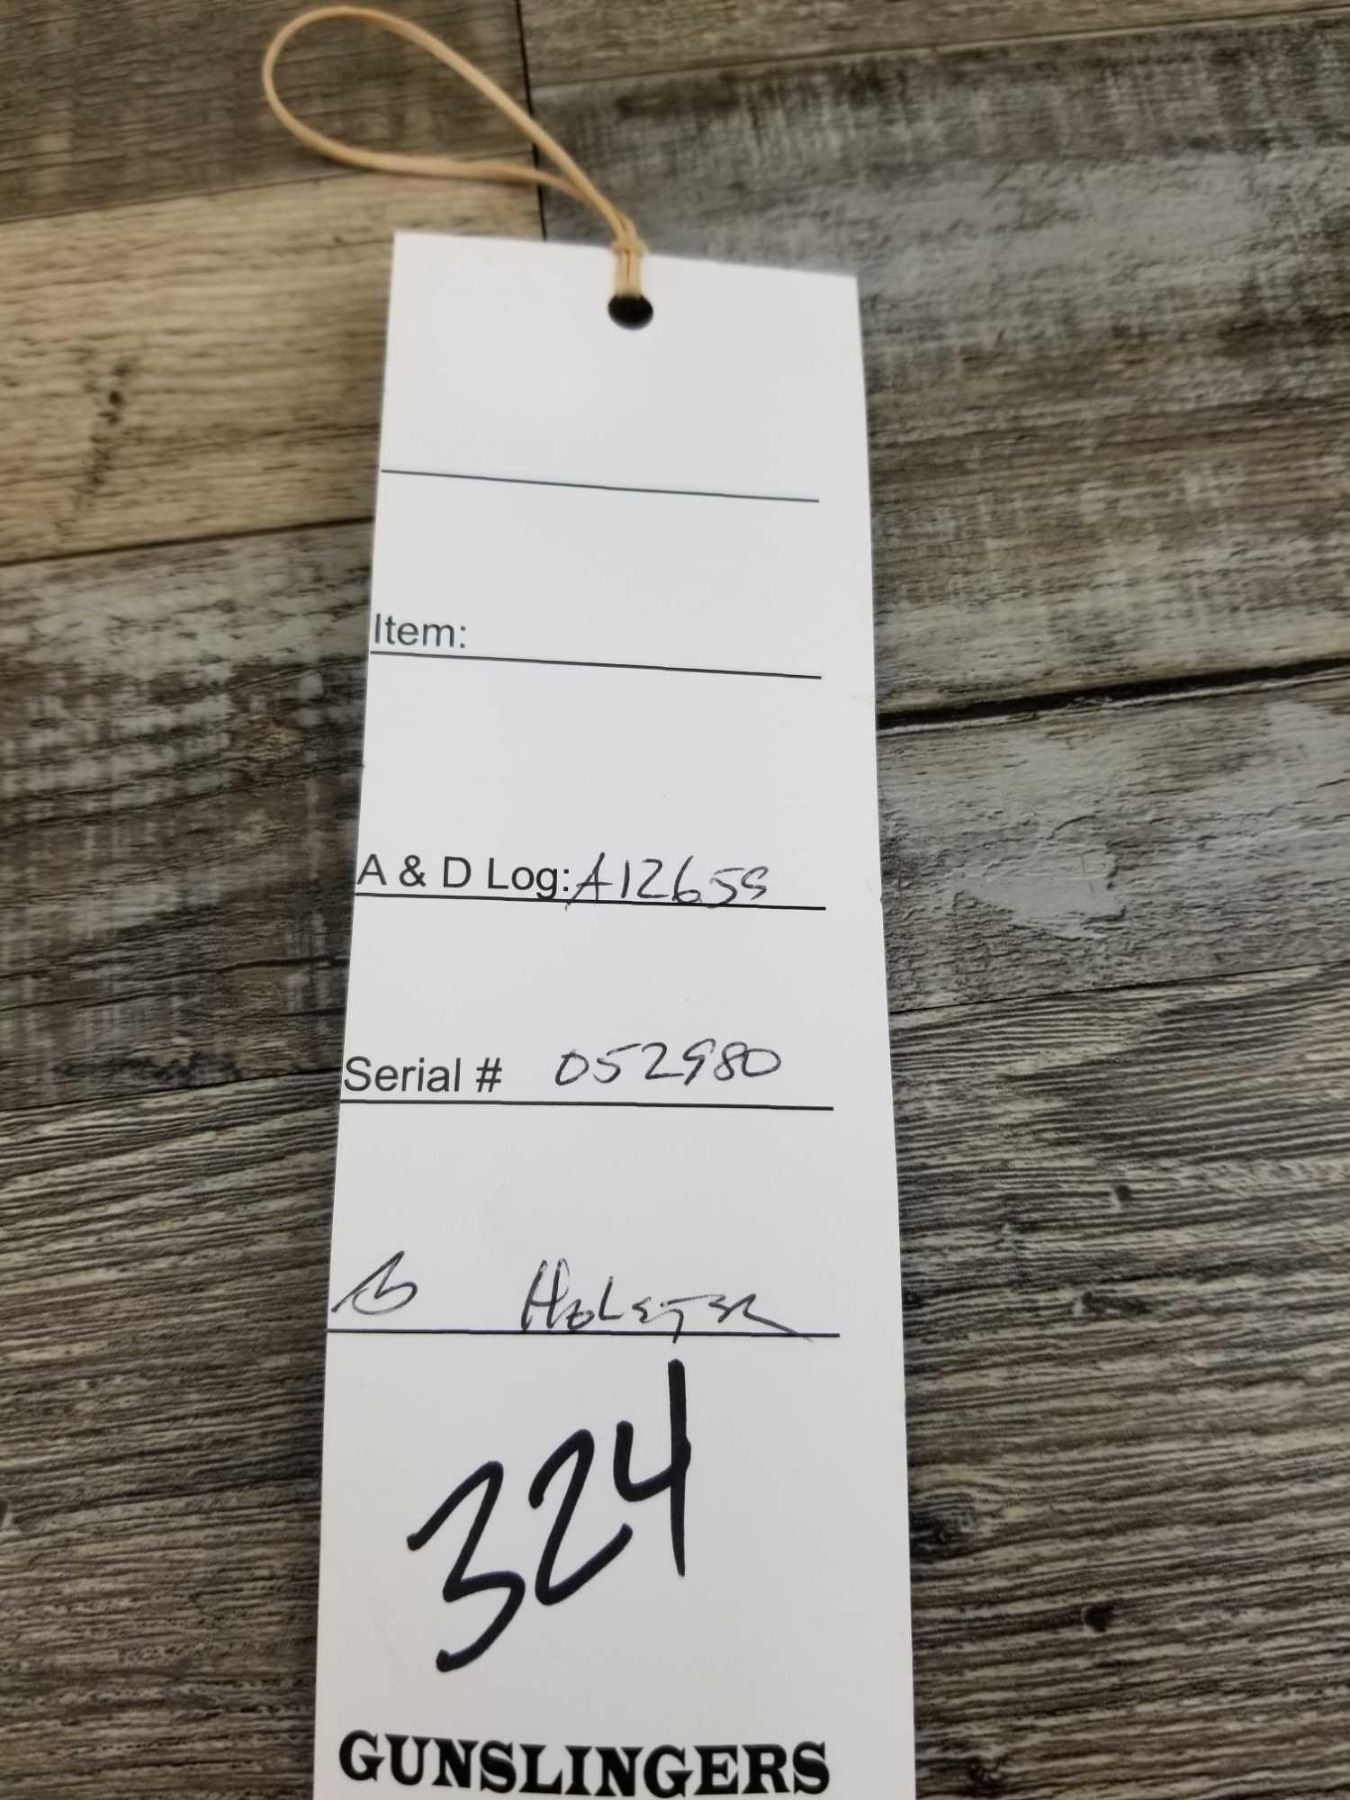 Item:
A & D Log: A12659
Serial # 052980
HOLSTER
324
GUNSLINGERS